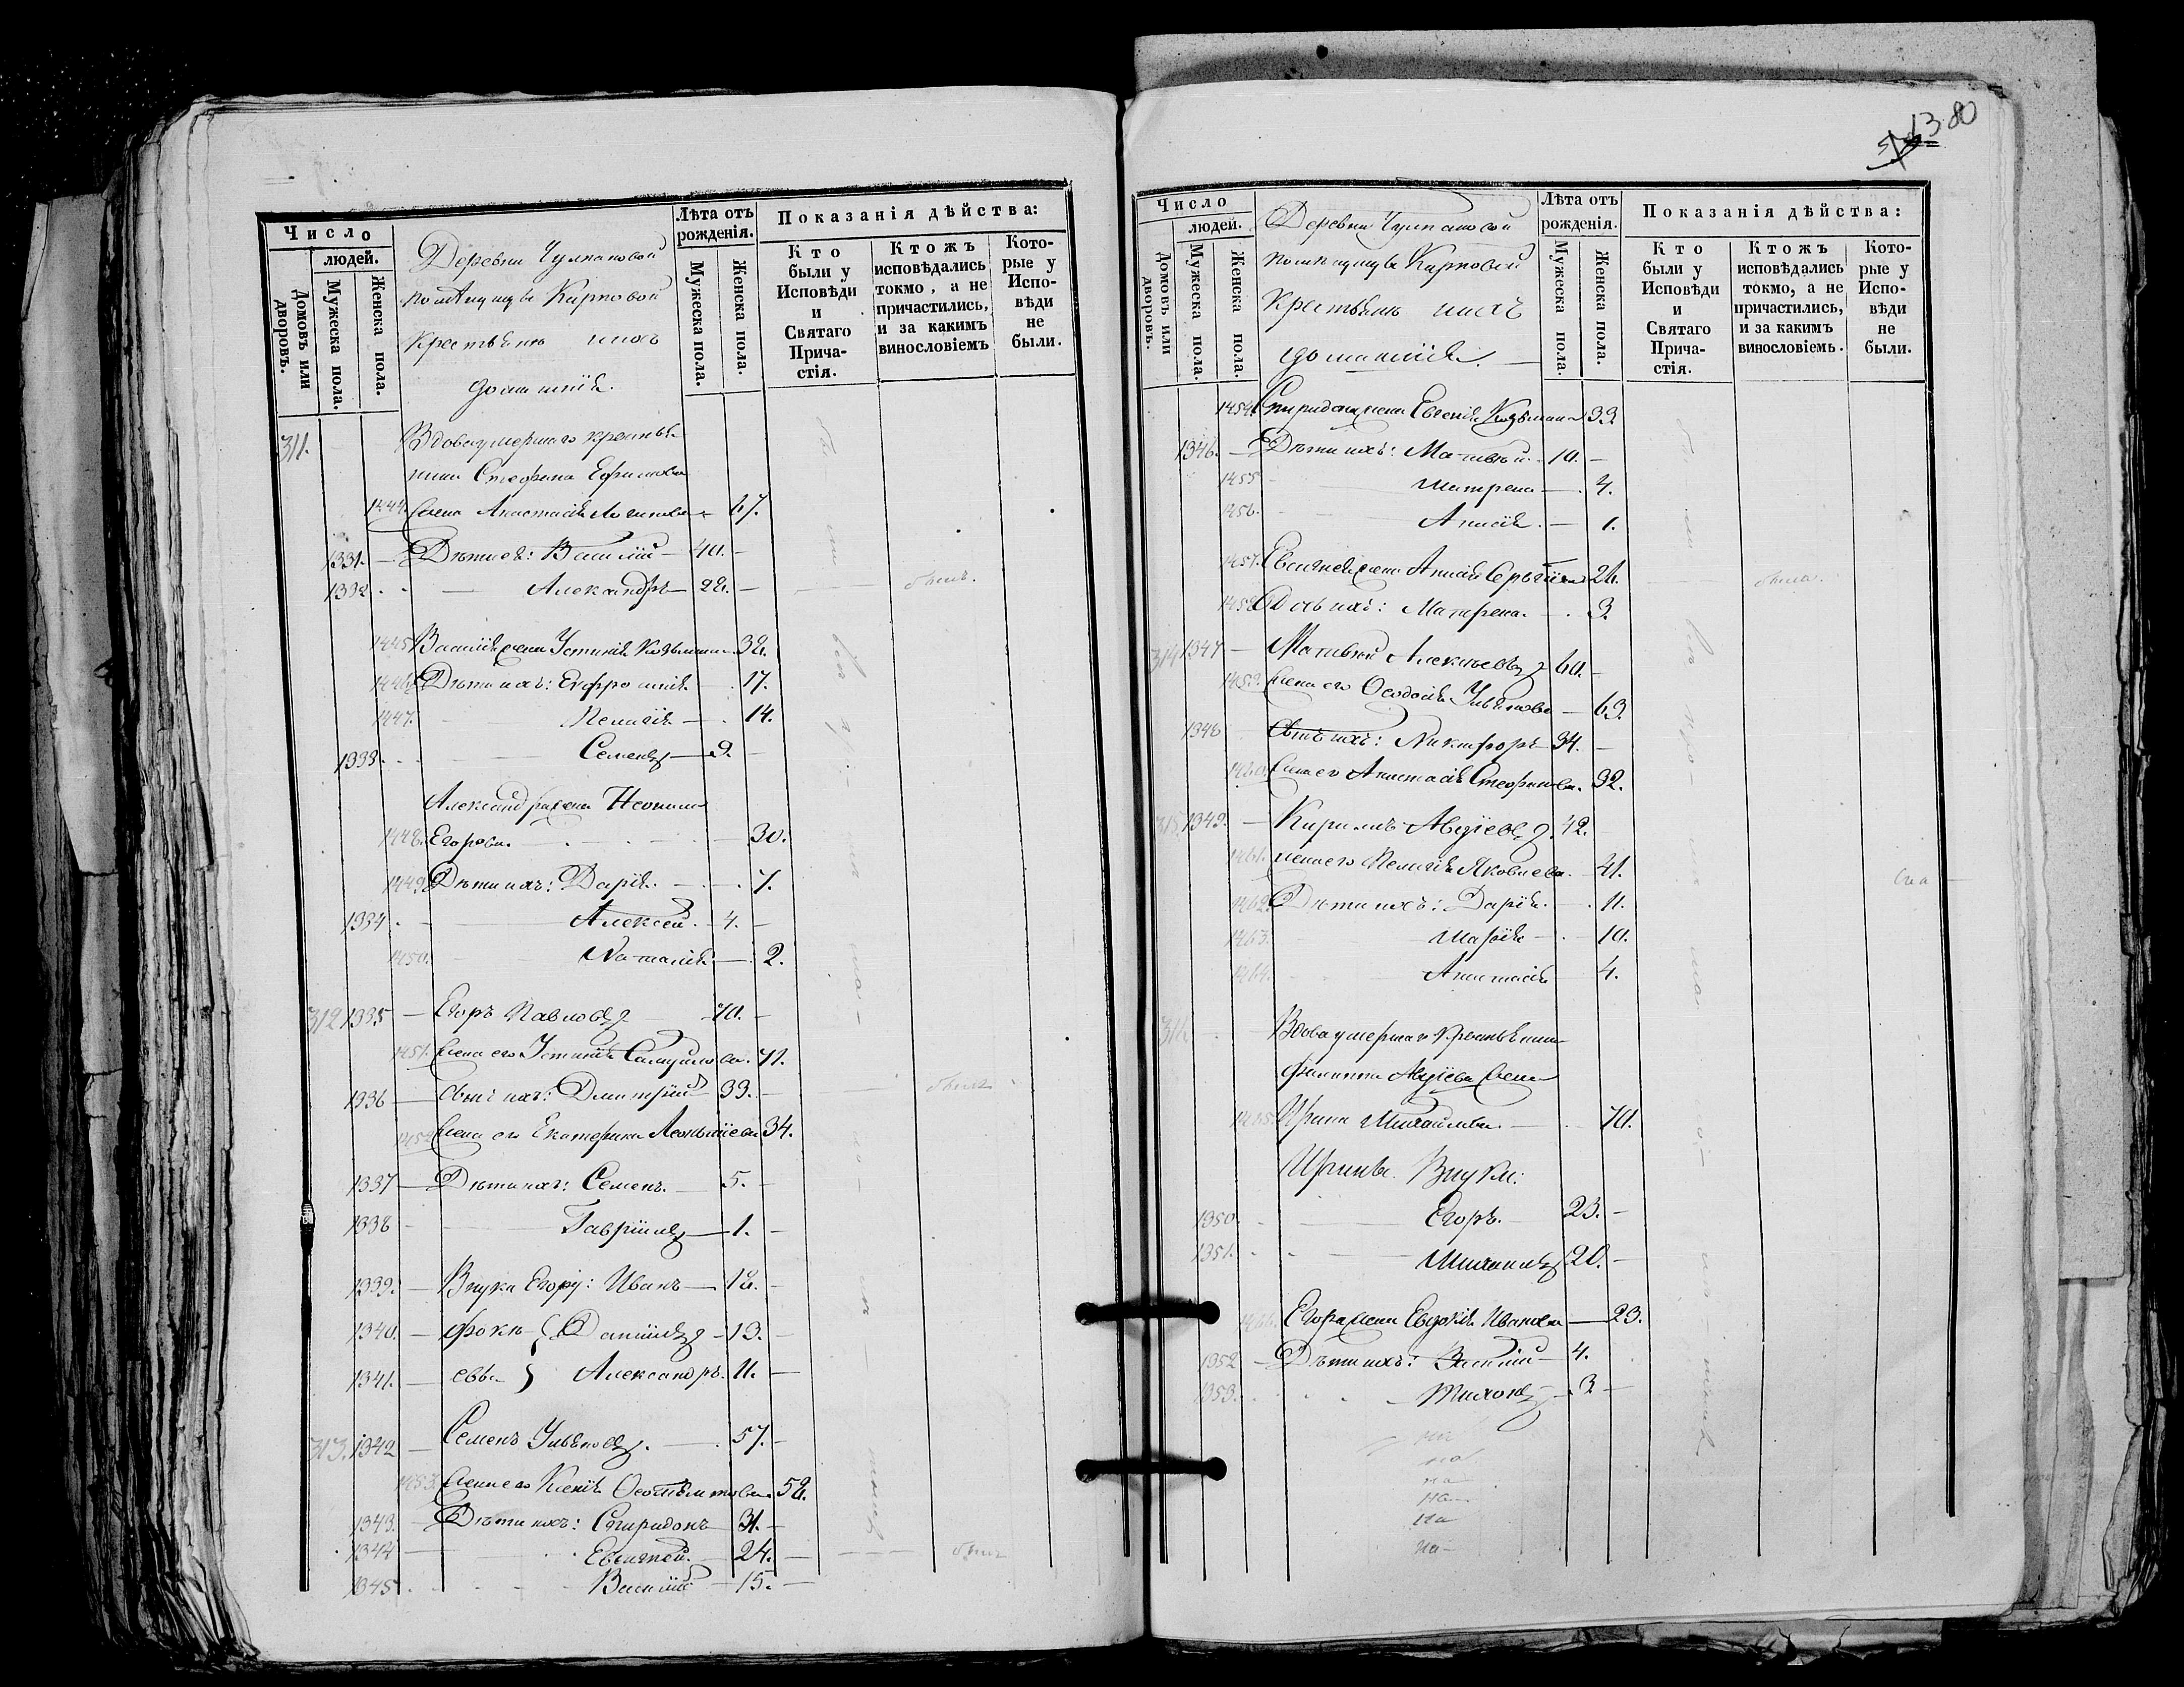 Число
людей.
Домовъ или дворовъ.
Мужеска пола.
Женска пола.
Деревни Чулпановой
помѣщицы Карповой
крестьяне и ихъ
домашнiе.
Лѣта отъ
рожденія.
Мужеска пола.
Женска пола.
Показанія дѣйства:
Кто
были у
Исповѣди
и
Святаго
Прича-
стія.
Ктожъ
исповѣдались
токмо, а не
причастились,
и за какимъ
винословіемъ
Кото-
рые у
Испо-
вѣди
не
были.
311. Вдова умершаго крестья-
нина Стефана Ефимова
1444. жена Анастасія 67.
1331. Дѣти ея: Василій 40.
1332 Александръ 28. былъ.
1445 Василія жена Устинія Козьмина 38.
1446 Дѣти ихъ: Евфросинія 17.
1447. Пелагія 14.
1333. Семенъ 9.
Александра жена Неонила
1448. Егорова. 30.
1449. Дѣти ихъ: Дарія. 7.
1334 Алексей. 4.
1450. Наталія 2.
312 1335 Егоръ Павловъ 70.
1451. жена его Устинія Самуилова. 71.
1336 Сынъ ихъ: Димитрій 33. былъ
1452 жена его Екатерина 34.
1337 Дѣти ихъ: Семенъ. 5.
1338 Гавріилъ 1.
1339. Внуки Егору: Иванъ 18.
1340. Фоки- Даніилъ 13.
1341. евы Александръ. 11.
313. 1342 Семенъ Ульяновъ. 57.
1453. жена его Ксенія 58.
1343. Дѣти ихъ: Спиридонъ 31.
1344 Евсигней. 24. былъ
1345 Василій 15.
13 80
Число
людей.
Домовъ или дворовъ.
Мужеска пола.
Женска пола.
Деревни Чулпановой
помѣщицы Карповой
крестьяне и ихъ
домашнiе.
Лѣта отъ
рожденія.
Мужеска пола.
Женска пола.
Показанія дѣйства:
Кто
были у
Исповѣди
и
Святаго
Прича-
стія.
Ктожъ
исповѣдались
токмо, а не
причастились,
и за какимъ
винословіемъ.
Кото-
рые у
Испо-
вѣди
не
были.
1454. Спиридона жена Евгенія Козьмина 33.
1346. Дѣти ихъ: Матвей 10.
1455 Матрена 4.
1456. Анисія 1.
1457. Евсигнея жена 26. была.
1458 Дочь ихъ: Матрена. 3.
314 1347 Матвей Алексѣевъ 60.
1459. жена его Ѳеодосія Ульянова 63.
1348 Сынъ ихъ: Никифоръ 34.
1460. жена его Анастасія Стефанова. 32.
315 1349. Кирилъ Авдіевъ 42.
1461. жена его Пелагія Яковлева. 41.
1462 Дѣти ихъ: Дарія. 11.
1463. Марія 10.
1464. Анастасія 4.
316. Вдова умершаго крестьянина
Филиппа Авдіева жена
1465. Ирина Михайлова. 70.
Иринѣ Внуки:
1350. Егоръ. 23.
1351. Михаилъ 20.
1466. Егора жена Евдокія Иванова 23.
1352 Дѣти ихъ: Василій 4.
1353. Тихонъ 3